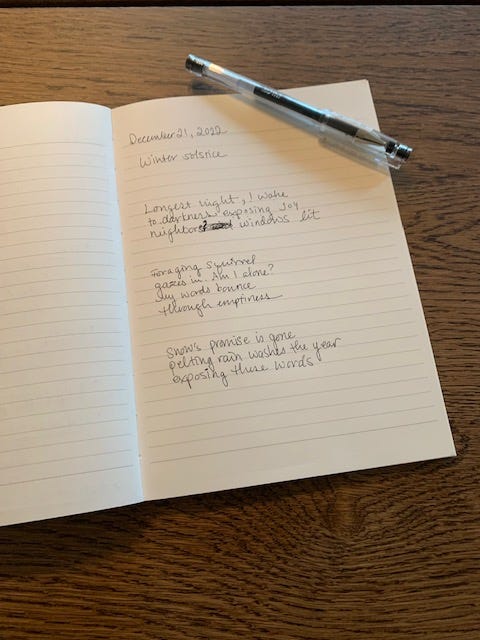 December 21, 2022
Winter solstice
Longest night, I wake
to darkness exposing joy
neighbors' windows lit
Foraging squirrel
gazes in. Am I alone?
My words bounce
through emptiness
Snow's promise is gone
pelting rain washes the year
exposing these words